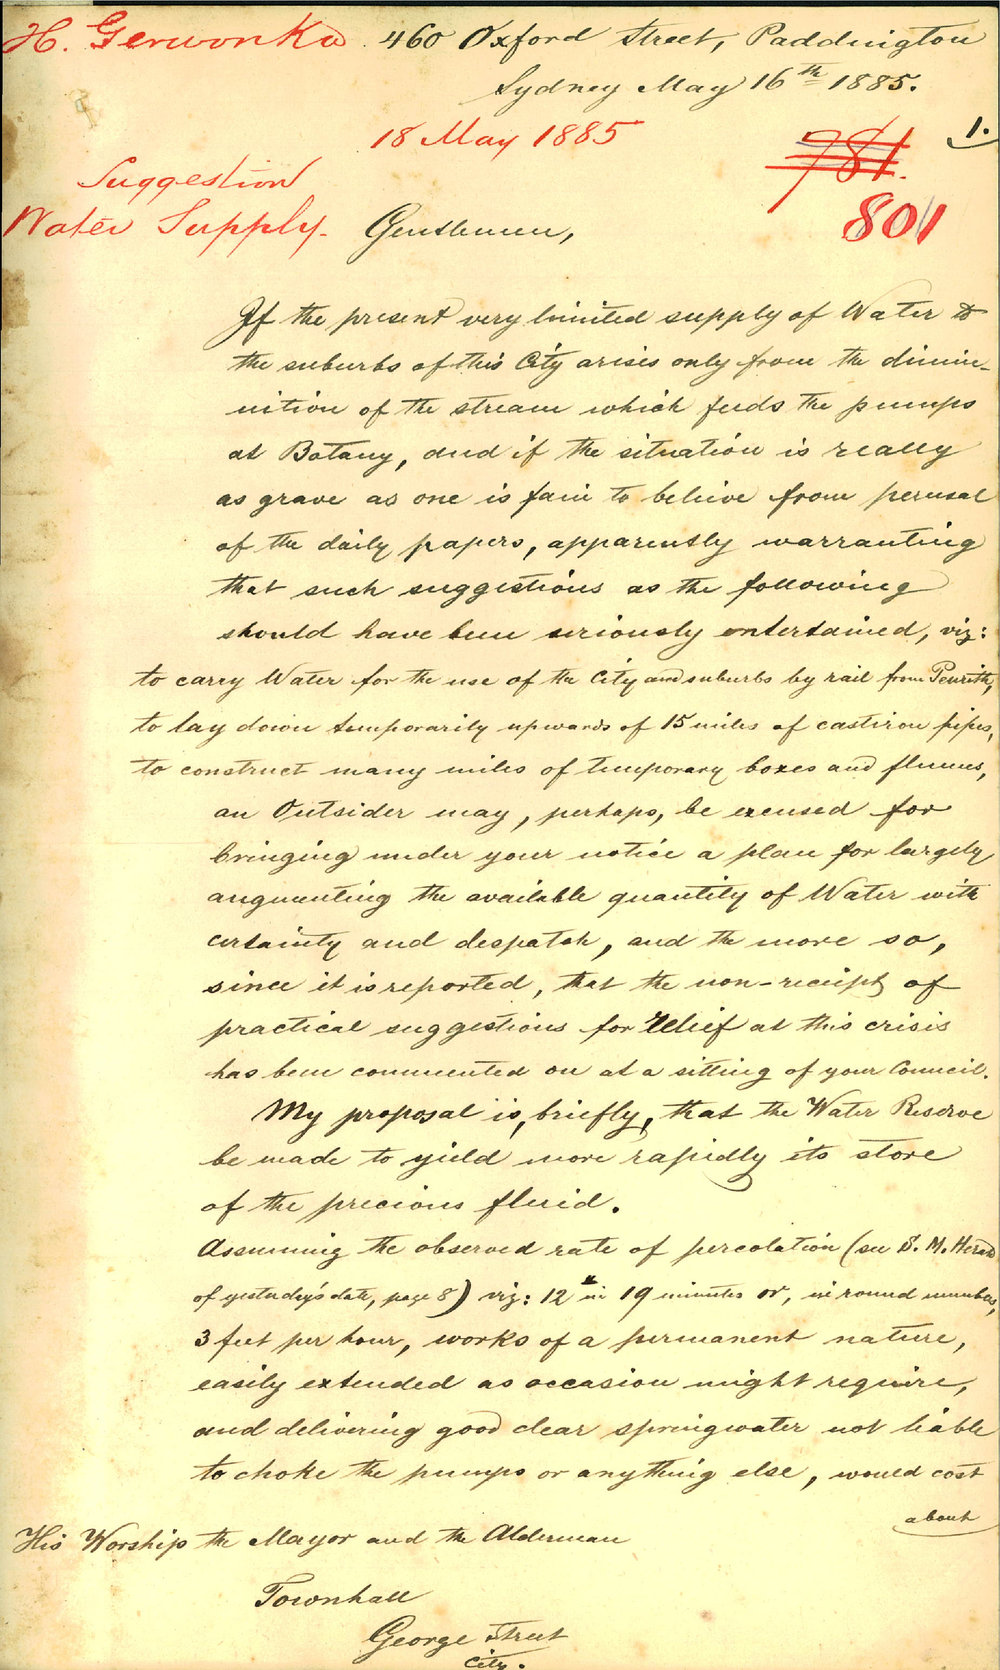 H. Gerwonka 460 Oxford Street, Paddington
Sydney May 16th 1885.
18 May 1885
1.
781.
801
Suggestion
Water Supply.
Gentlemen,
If the present very limited supply of Water to
the suburbs of this City arises only from the dimin-
nition of the stream which feeds the pumps
at Botany, and if the situation is really
as grave as one is fain to believe from perusal
of the daily papers, apparently warranting
that such suggestions as the following
should have been seriously entertained, viz:
to carry Water for the use of the City and suburbs by rail from Penrith,
to lay down temporarily upwards of 15 miles of castiron pipes,
to construct many miles of temporary boxes and flumes,
an Outsider may, perhaps, be excused for
bringing under your notice a plan for largely
augmenting the available quantity of Water with
certainty and despatch, and the more so,
since it is reported, that the non-receipt of
practical suggestions for relief at this crisis
has been commented on at a sitting of your Council.
My proposal is, briefly, that the Water Reserve
be made to yield more rapidly its store
of the precious fluid.
Assuming the observed rate of percolation (see S. M. Herald
of yesterday's date, page 8) viz: 12" in 19 minutes or, in round numbers,
3 feet per hour, works of a permanent nature,
easily extended as occasion might require,
and delivering good clear springwater not liable
to choke the pumps or anything else, would cost
about
His Worship the Mayor and the Alderman
Townhall
George Street
City.